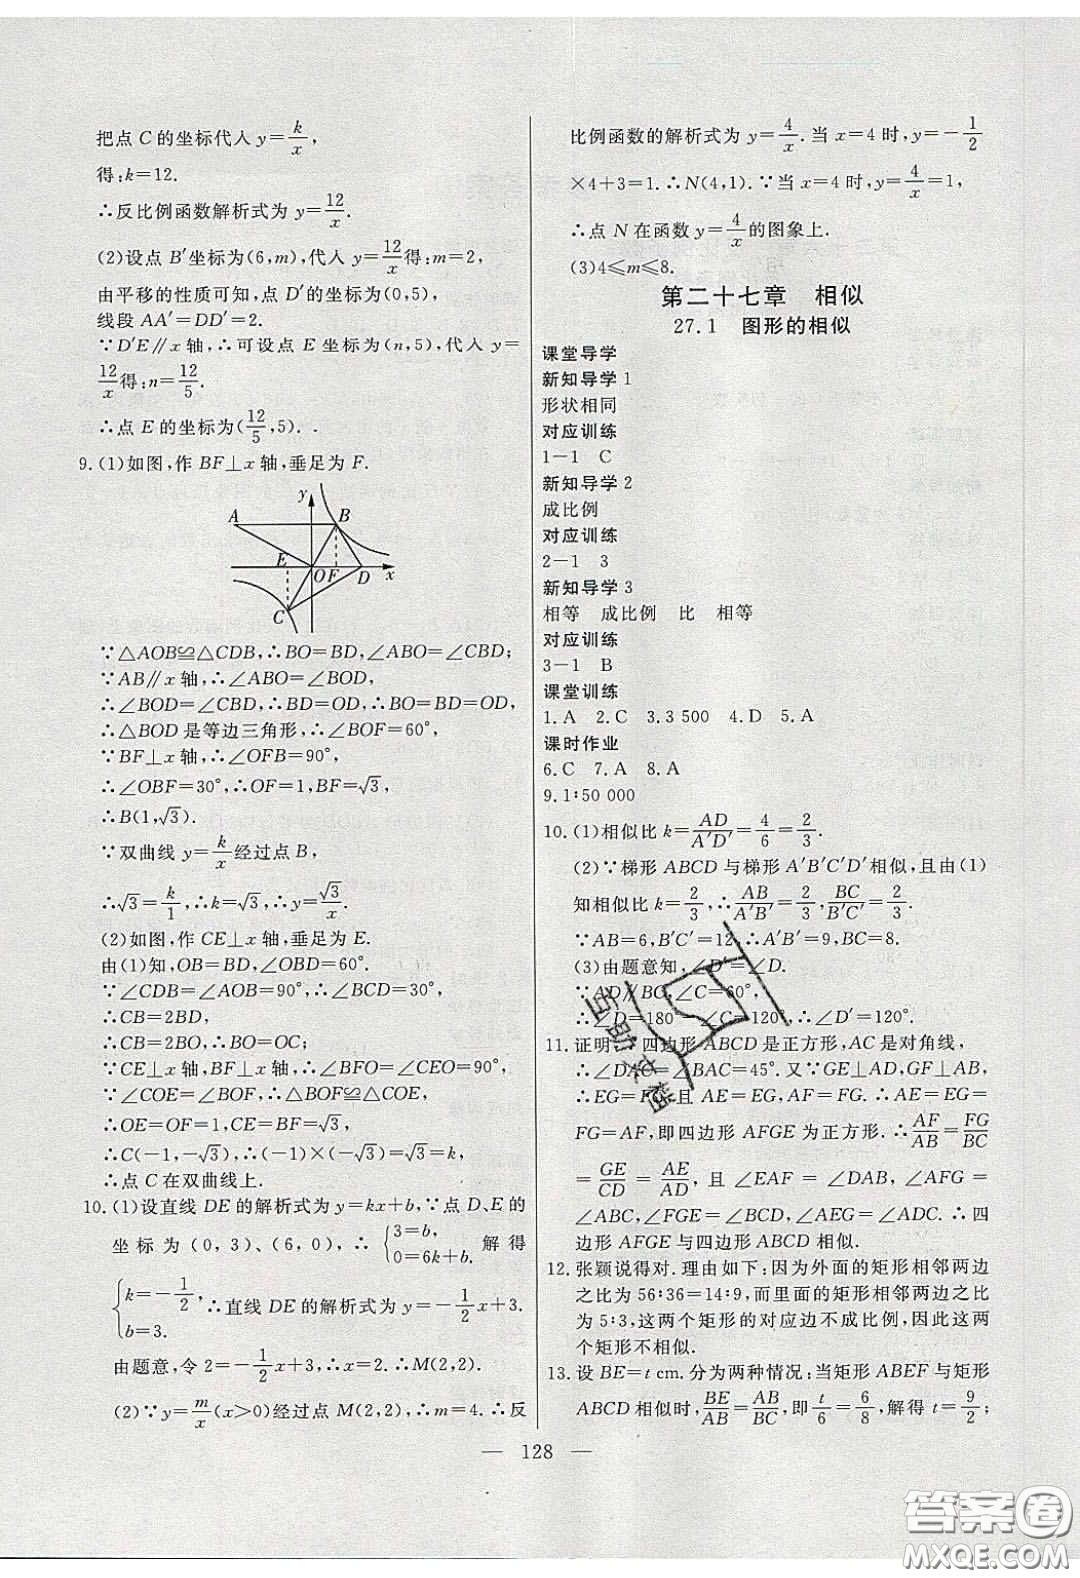 把点 C 的坐标代入 y=k/x,
得:k=12.
∴反比例函数解析式为 y=12/x.
(2)设点 B′坐标为(6,m),代入 y=12/x得:m=2,
由平移的性质可知,点 D′的坐标为(0,5),
线段 AA′=DD′=2.
∵D′E∥x 轴,∴可设点 E 坐标为(n,5),代入 y=
12/x得:n=12/5.
∴点 E 的坐标为(12/5,5). .
9.(1)如图,作 BF⊥x 轴,垂足为 F.
y
A B
E O F D x
C
∵△AOB≌△CDB,∴BO=BD,∠ABO=∠CBD;
∵AB∥x 轴,∴∠ABO=∠BOD,
∴∠BOD=∠CBD,∴BD=OD,∴BO=BD=OD,
∴△BOD 是等边三角形,∴∠BOF=60°,
∵BF⊥x 轴,∴∠OFB=90°,
∴∠OBF=30°,∴OF=1,BF=√3,
∴B(1,√3).
∵双曲线 y=k/x经过点 B,
∴√3=k/1,∴k=√3,∴y=√3/x.
(2)如图,作 CE⊥x 轴,垂足为 E.
由(1)知,OB=BD,∠OBD=60°.
∵∠CDB=∠AOB=90°,∴∠BCD=30°,
∴CB=2BD,
∴CB=2BO,∴BO=OC;
∵CE⊥x 轴,BF⊥x 轴,∴∠BFO=∠CEO=90°,
∵∠COE=∠BOF,∴△BOF≌△COE,
∴OE=OF=1,CE=BF=√3,
∴C(-1,-√3),∴(-1)×(-√3)=√3=k,
∴点 C 在双曲线上.
10.(1)设直线 DE 的解析式为 y=kx+b,∵点 D、E 的
坐标为(0,3)、(6,0),∴{3=b, 0=6k+b. 解得
{k=-1/2, b=3. ∴直线 DE 的解析式为 y=-1/2x+3.
由题意,令 2=-1/2x+3,∴x=2.∴M(2,2).
(2)∵y=m/x(x>0)经过点 M(2,2),∴m=4.∴反
比例函数的解析式为 y=4/x.当 x=4 时,y=-1/2
×4+3=1.∴N(4,1).∵当 x=4 时,y=4/x=1,
∴点 N 在函数 y=4/x的图象上.
(3)4⩽m⩽8.
第二十七章 相似
27.1 图形的相似
课堂导学
新知导学 1
形状相同
对应训练
1-1 C
新知导学 2
成比例
对应训练
2-1 3
新知导学 3
相等 成比例 比 相等
对应训练
3-1 B
课堂训练
1.A 2.C 3.3 500 4.D 5.A
课时作业
6.C 7.A 8.A
9.1∶50 000
10.(1)相似比 k=AD/A′D′=4/6=2/3.
(2)∵梯形 ABCD 与梯形 A′B′C′D′相似,且由(1)
知相似比 k=2/3,∴AB/A′B′=2/3,BC/B′C′=2/3.
∵AB=6,B′C′=12,∴A′B′=9,BC=8.
(3)由题意知,∠D′=∠D.
∵AD∥BC,∠C=60°,
∴∠D=180°-∠C=120°,∴∠D′=120°.
11.证明:∵四边形 ABCD 是正方形,AC 是对角线,
∴∠DAC=∠BAC=45°.又∵GE⊥AD,GF⊥AB,
∴EG=FG,且 AE=EG,AF=FG.∴AE=EG=
FG=AF,即四边形 AFGE 为正方形.∴AF/AB=FG/BC
=GE/CD=AE/AD,且∠EAF=∠DAB,∠AFG=
∠ABC,∠FGE=∠BCD,∠AEG=∠ADC.∴四
边形 AFGE 与四边形 ABCD 相似.
12.张颖说得对.理由如下:因为外面的矩形相邻两边
之比为 56∶36=14∶9,而里面的矩形相邻两边之比
为 5∶3,这两个矩形的对应边不成比例,因此这两
个矩形不相似.
13.设 BE=t cm.分为两种情况:当矩形 ABEF 与矩形
ABCD 相似时,BE/AB=AB/BC,即t/6=6/8,解得 t=9/2;
— 128 —
答案卷
MXQE.COM